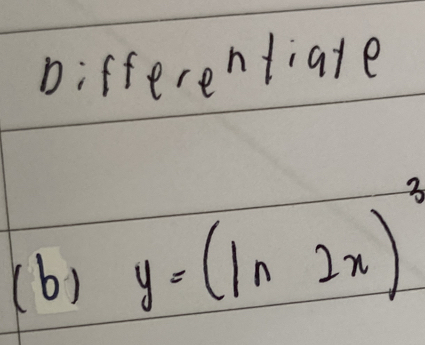 Differentiate
(b) y = (ln 2x)³